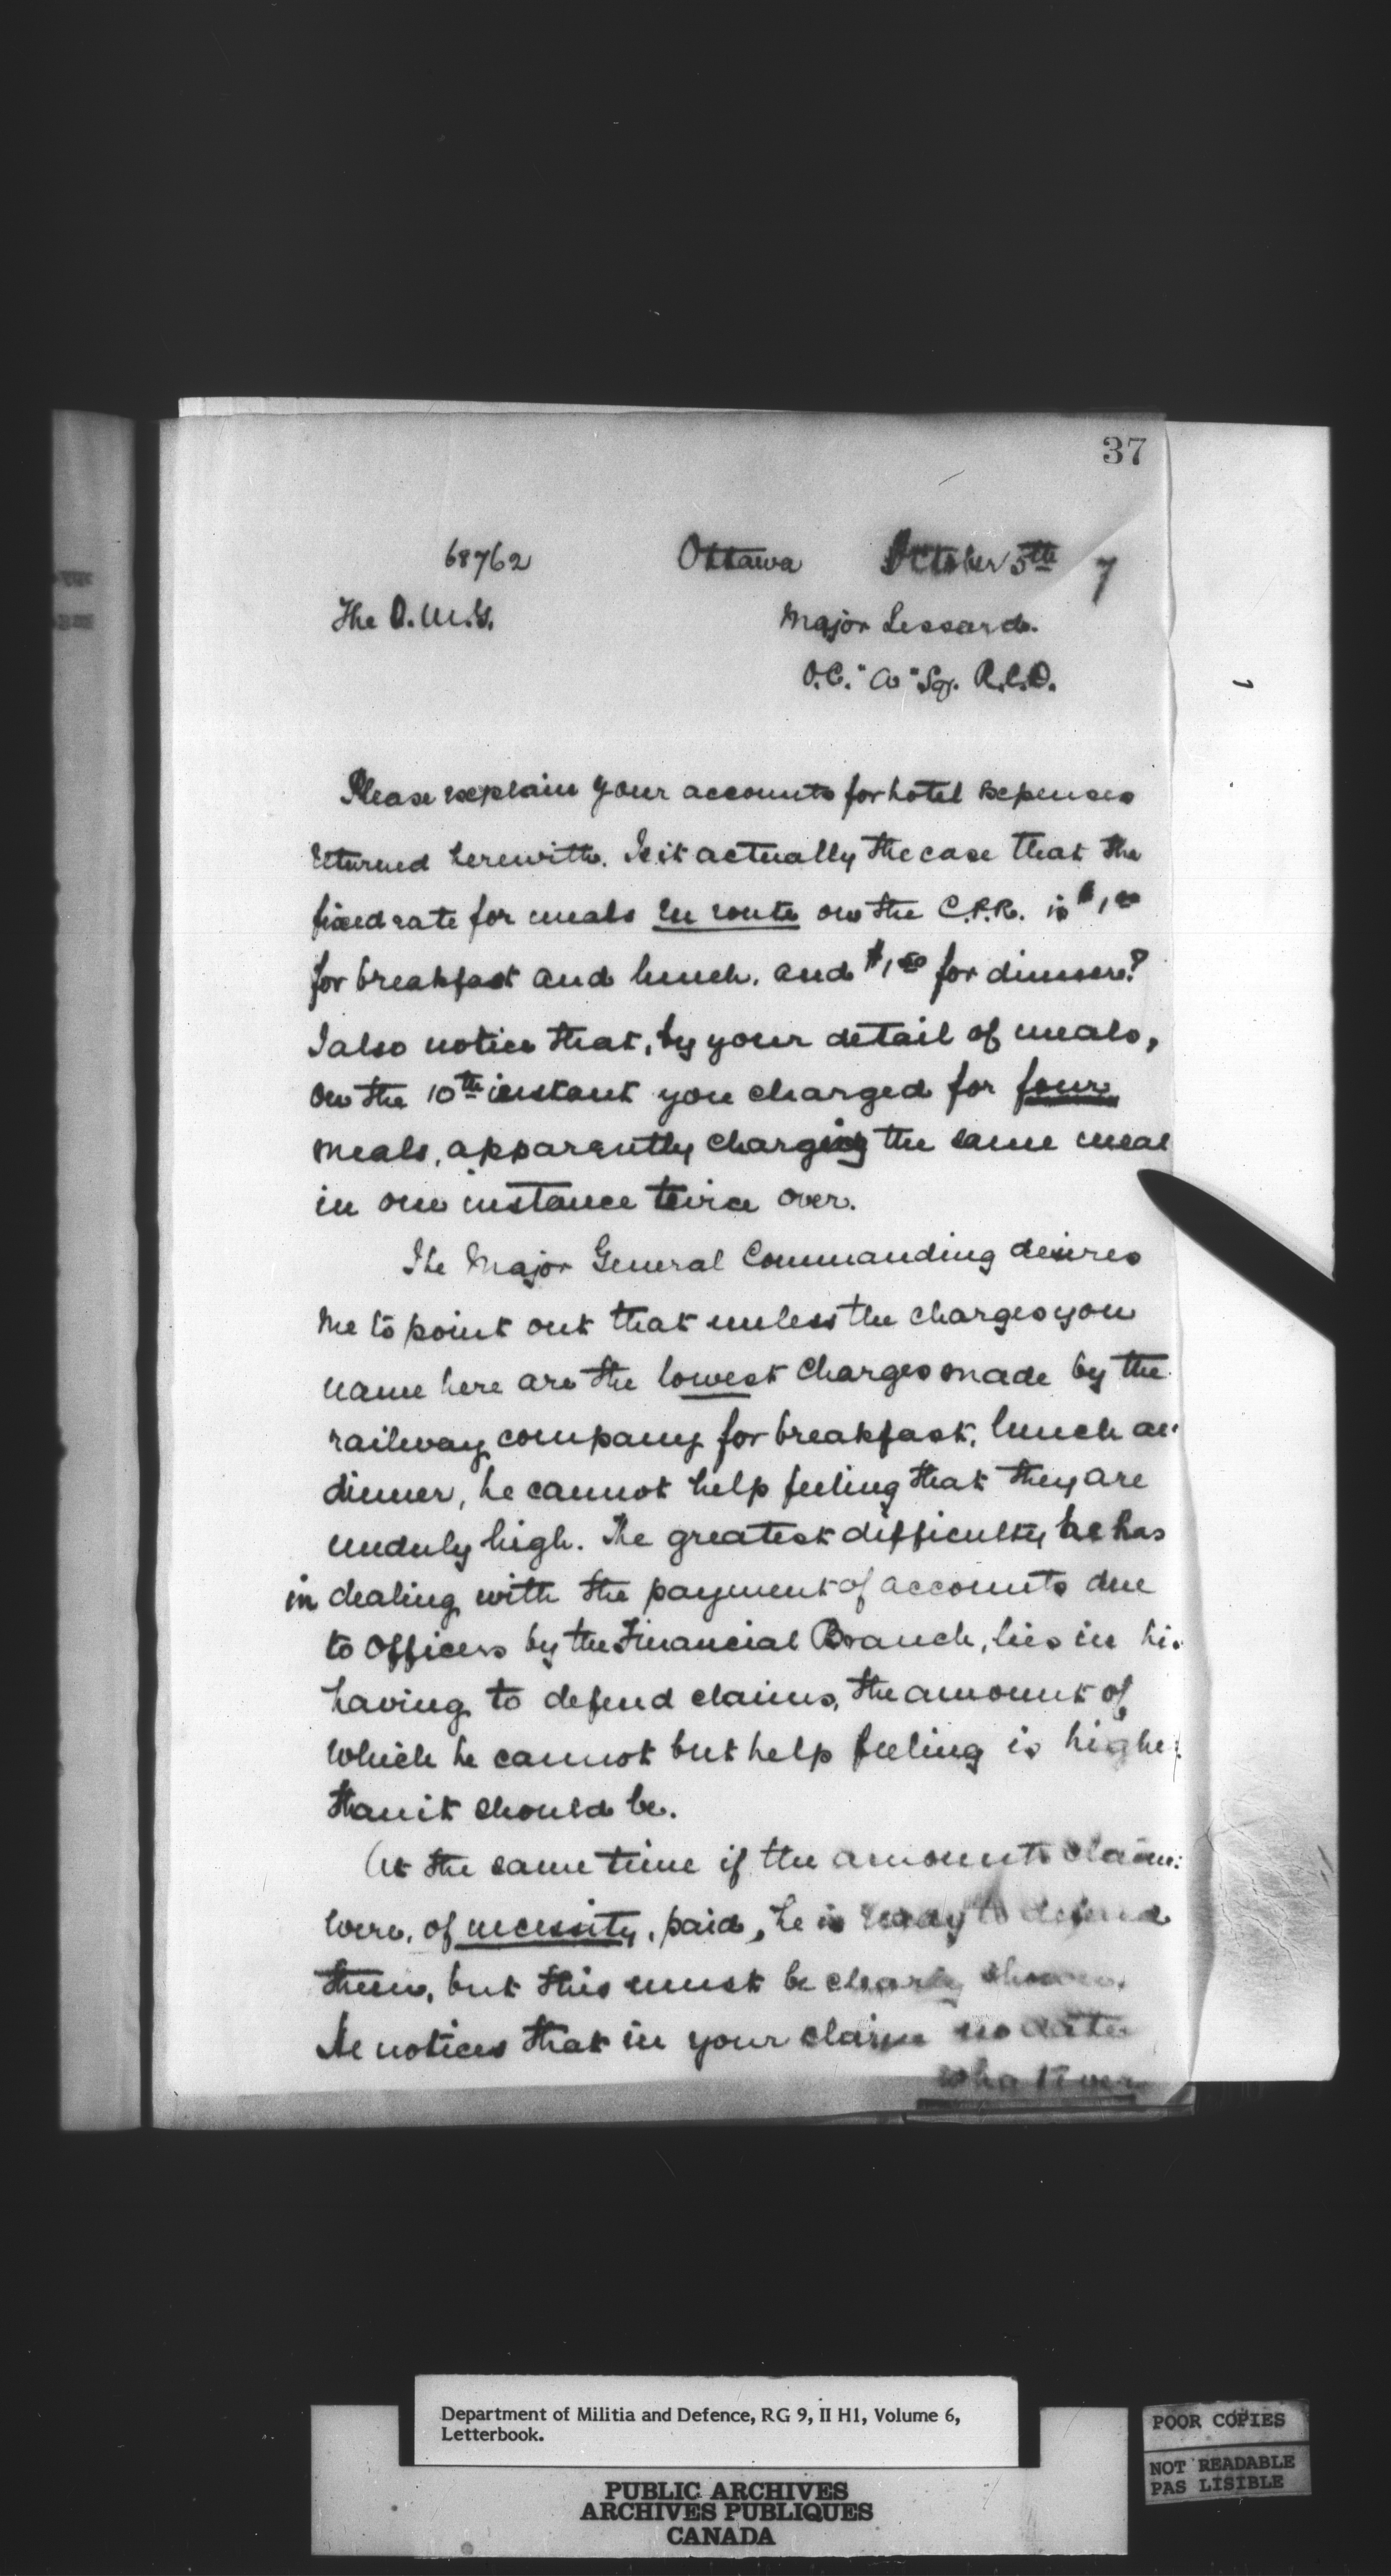 37
68762 Ottawa October 5th 7
The Q.M.G. Major Lessard.
O.C. "A" Sqr. R.C.D.
Please explain your accounts for hotel expenses
returned herewith. Is it actually the case that the
fixed rate for meals en route on the C.P.R. is $1.00
for breakfast and lunch, and $1.50 for dinner?
I also notice that, by your detail of meals,
on the 10th instant you charged for four
meals, apparently charging the same meal
in one instance twice over.
The Major General Commanding desires
me to point out that unless the charges you
name here are the lowest charges made by the
railway company for breakfast, lunch an
dinner, he cannot help feeling that they are
unduly high. The greatest difficulty he has
in dealing with the payment of accounts due
to Officers by the Financial Branch, lies in his
having to defend claims, the amount of
which he cannot but help feeling is higher
than it should be.
At the same time if the amounts claim
were, of necessity, paid, he is ready to defend
them, but this must be clearly shown.
He notices that in your claim no dates
whatever
Department of Militia and Defence, RG 9, II H1, Volume 6,
Letterbook.
PUBLIC ARCHIVES
ARCHIVES PUBLIQUES
CANADA
POOR COPIES
NOT READABLE
PAS LISIBLE